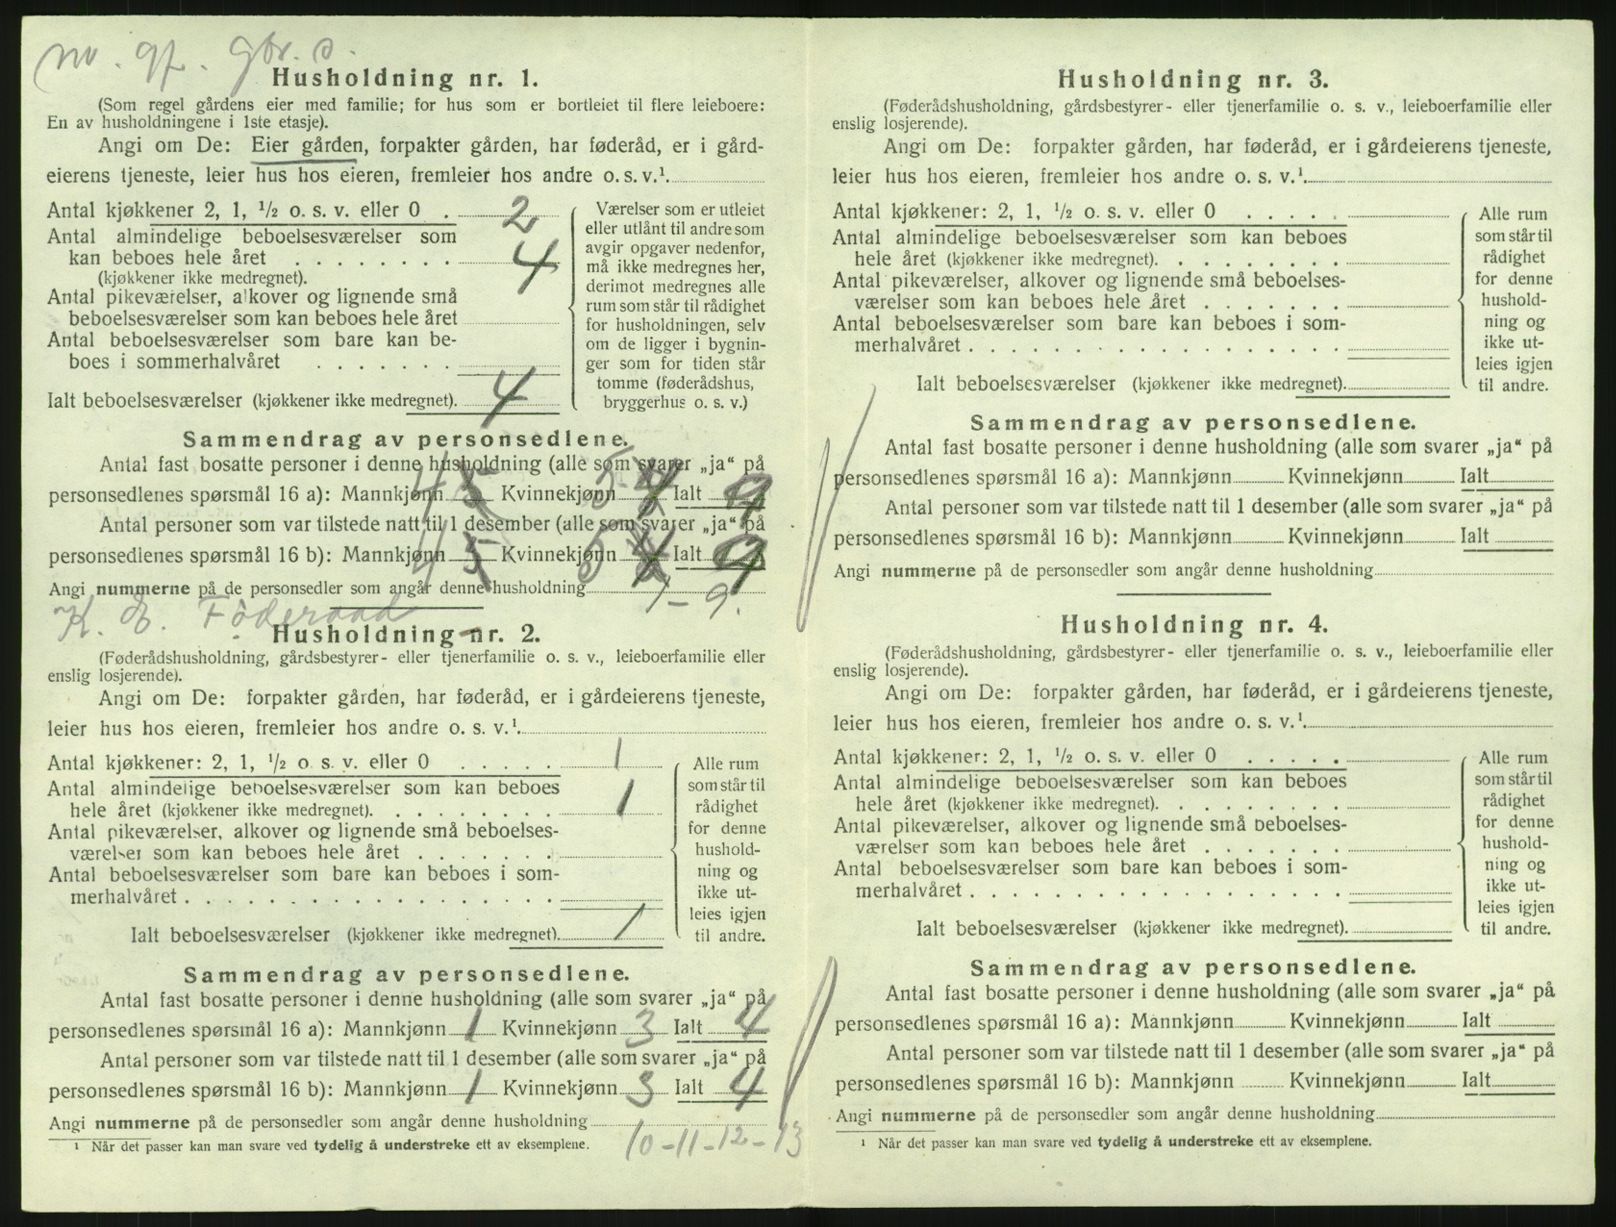 Husholdning nr. 1.
(Som regel gårdens eier med familie; for hus som er bortleiet til flere leieboere:
En av husholdningene i 1ste etasje).
Angi om De: Eier gården, forpakter gården, har føderåd, er i gård-
eierens tjeneste, leier hus hos eieren, fremleier hos andre o. s. v.¹.
Antal kjøkkener 2, 1, ½ o. s. v. eller 0 . 2
Antal almindelige beboelsesværelser som
kan beboes hele året . . . . . . . . 4
(kjøkkener ikke medregnet).
Antal pikeværelser, alkover og lignende små
beboelsesværelser som kan beboes hele året
Antal beboelsesværelser som bare kan be-
boes i sommerhalvåret . . . . . . .
Ialt beboelsesværelser (kjøkkener ikke medregnet). 4
Værelser som er utleiet
eller utlånt til andre som
avgir opgaver nedenfor,
må ikke medregnes her,
derimot medregnes alle
rum som står til rådighet
for husholdningen, selv
om de ligger i bygnin-
ger som for tiden står
tomme (føderådshus,
bryggerhus o. s. v.)
Sammendrag av personsedlene.
Antal fast bosatte personer i denne husholdning (alle som svarer „ja“ på
personsedlenes spørsmål 16 a): Mannkjønn 4 5 Kvinnekjønn 5 4 Ialt 9
Antal personer som var tilstede natt til 1 desember (alle som svarer „ja“ på
personsedlenes spørsmål 16 b): Mannkjønn 4 5 Kvinnekjønn 5 4 Ialt 9
Angi nummerne på de personsedler som angår denne husholdning 1-9.
K. E. Föderaad
Husholdning nr. 2.
(Føderådshusholdning, gårdsbestyrer- eller tjenerfamilie o. s. v., leieboerfamilie eller
enslig losjerende).
Angi om De: forpakter gården, har føderåd, er i gårdeierens tjeneste,
leier hus hos eieren, fremleier hos andre o. s. v.¹.
Antal kjøkkener: 2, 1, ½ o. s. v. eller 0 . . . . . 1
Antal almindelige beboelsesværelser som kan beboes
hele året (kjøkkener ikke medregnet). . . . . . . . . 1
Antal pikeværelser, alkover og lignende små beboelses-
værelser som kan beboes hele året . . . . . . .
Antal beboelsesværelser som bare kan beboes i som-
merhalvåret . . . . . . . . . . . . . . . . . .
Ialt beboelsesværelser (kjøkkener ikke medregnet). 1
Alle rum
som står til
rådighet
for denne
hushold-
ning og
ikke ut-
leies igjen
til andre.
Sammendrag av personsedlene.
Antal fast bosatte personer i denne husholdning (alle som svarer „ja“ på
personsedlenes spørsmål 16 a): Mannkjønn 1 Kvinnekjønn 3 Ialt 4
Antal personer som var tilstede natt til 1 desember (alle som svarer „ja“ på
personsedlenes spørsmål 16 b): Mannkjønn 1 Kvinnekjønn 3 Ialt 4
Angi nummerne på de personsedler som angår denne husholdning
10-11-12-13
¹ Når det passer kan man svare ved tydelig å understreke ett av eksemplene.
Husholdning nr. 3.
(Føderådshusholdning, gårdsbestyrer- eller tjenerfamilie o. s. v., leieboerfamilie eller
enslig losjerende).
Angi om De: forpakter gården, har føderåd, er i gårdeierens tjeneste,
leier hus hos eieren, fremleier hos andre o. s. v.¹.
Antal kjøkkener: 2, 1, ½ o. s. v. eller 0 . . . . .
Antal almindelige beboelsesværelser som kan beboes
hele året (kjøkkener ikke medregnet). . . . . . . . .
Antal pikeværelser, alkover og lignende små beboelses-
værelser som kan beboes hele året . . . . . . .
Antal beboelsesværelser som bare kan beboes i som-
merhalvåret . . . . . . . . . . . . . . . . . .
Ialt beboelsesværelser (kjøkkener ikke medregnet).
Alle rum
som står til
rådighet
for denne
hushold-
ning og
ikke ut-
leies igjen
til andre.
Sammendrag av personsedlene.
Antal fast bosatte personer i denne husholdning (alle som svarer „ja“ på
personsedlenes spørsmål 16 a): Mannkjønn Kvinnekjønn Ialt
Antal personer som var tilstede natt til 1 desember (alle som svarer „ja“ på
personsedlenes spørsmål 16 b): Mannkjønn Kvinnekjønn Ialt
Angi nummerne på de personsedler som angår denne husholdning
Husholdning nr. 4.
(Føderådshusholdning, gårdsbestyrer- eller tjenerfamilie o. s. v., leieboerfamilie eller
enslig losjerende).
Angi om De: forpakter gården, har føderåd, er i gårdeierens tjeneste,
leier hus hos eieren, fremleier hos andre o. s. v.¹.
Antal kjøkkener: 2, 1, ½ o. s. v. eller 0 . . . . .
Antal almindelige beboelsesværelser som kan beboes
hele året (kjøkkener ikke medregnet). . . . . . . . .
Antal pikeværelser, alkover og lignende små beboelses-
værelser som kan beboes hele året . . . . . . .
Antal beboelsesværelser som bare kan beboes i som-
merhalvåret . . . . . . . . . . . . . . . . . .
Ialt beboelsesværelser (kjøkkener ikke medregnet).
Alle rum
som står til
rådighet
for denne
hushold-
ning og
ikke ut-
leies igjen
til andre.
Sammendrag av personsedlene.
Antal fast bosatte personer i denne husholdning (alle som svarer „ja“ på
personsedlenes spørsmål 16 a): Mannkjønn Kvinnekjønn Ialt
Antal personer som var tilstede natt til 1 desember (alle som svarer „ja“ på
personsedlenes spørsmål 16 b): Mannkjønn Kvinnekjønn Ialt
Angi nummerne på de personsedler som angår denne husholdning
¹ Når det passer kan man svare ved tydelig å understreke ett av eksemplene.